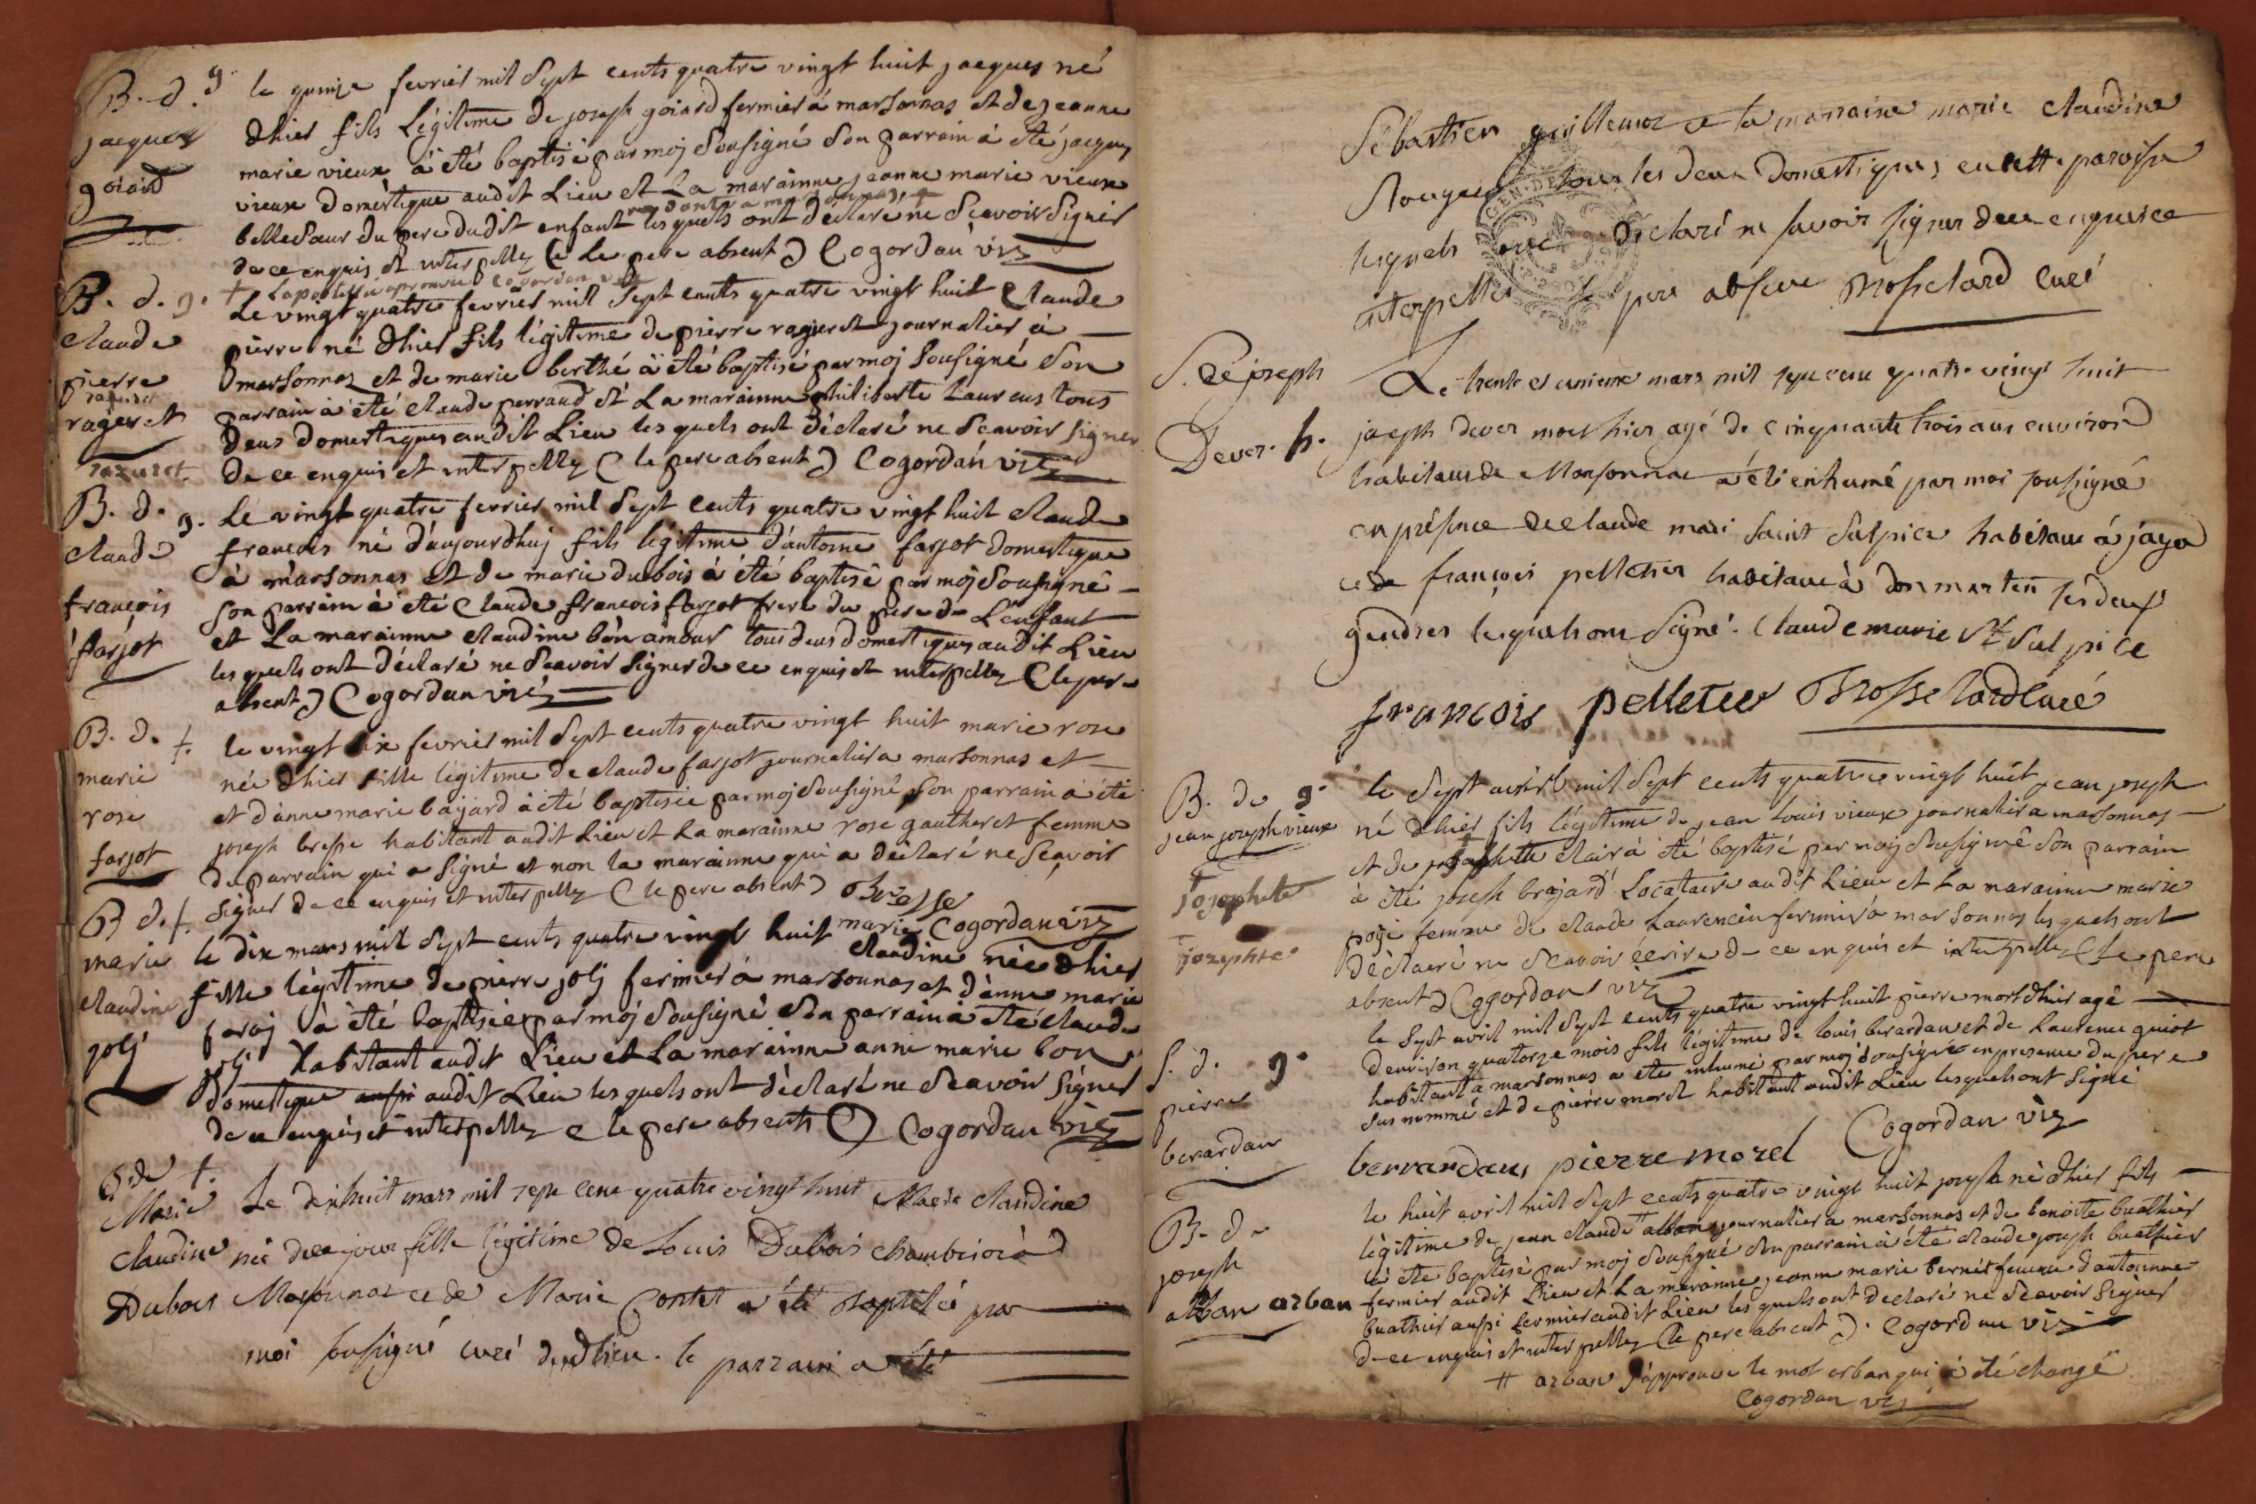 B. d. g.
jacques
goiard
le quinze fevrier mil sept cents quatre vingt huit jacques né
dhier fils légitime de joseph goiard fermier à marsonnas et de jeanne
marie vieux à été baptisé par moj sousigné son parrain à été jacques
vieux domestique audit lieu et la marainne jeanne marie vieux
bellesœur du pere dudit enfant les quels ont déclaré ne scavoir signer
de ce enquis et interpellez ( le pere absent ) Cogordan viz
B. d. g.
claude
pierre
ragieret
razuret
le vingt quatre fevrier mil sept cents quatre vingt huit claude
pierre né dhier fils légitime de pierre ragieret journalier à
marsonnas et de marie berthé à été baptisé par moj sousigné son
parrain à été claude perraud et la marainne philiberte laurens tous
deus domestiques audit lieu les quels ont déclaré ne scavoir signer
de ce enquis et interpellez ( le pere absent ) Cogordan viz
B. d. g.
claude
françois
farjot
le vingt quatre fevrier mil sept cents quatre vingt huit claude
françois né d'aujourdhuj fils légitime d'antoine farjot domestique
à marsonnas et de marie dubois à été baptisé par moj sousigné
son parrain à été claude françois farjot frere du pere de l'enfant
et la marainne claudine bon amour tous deus domestiques audit lieu
les quels ont déclaré ne scavoir signer de ce enquis et interpellez ( le pere
absent ) Cogordan viz
B. d. f.
marie
rose
farjot
le vingt six fevrier mil sept cents quatre vingt huit marie rose
née dhier fille légitime de claude farjot journalier a marsonnas et
et d'anne marie bajard à été baptisée par moj sousigné son parrain à été
joseph bresse habitant audit lieu et la marainne rose gautheret femme
du parrain qui a signé et non la marainne qui a déclaré ne scavoir
signer de ce enquis et interpellez ( le pere absent ) bresse
Cogordan viz
B d. f.
marie
claudine
jolj
le dix mars mil sept cents quatre vingt huit marie
claudine née dhier
fille légitime de pierre jolj fermier à marsonnas et d'anne marie
faraj à été baptisée par moj sousigné son parrain à été claude
jolj habitant audit lieu et la marainne anne marie bon
domestique aussi audit lieu les quels ont déclaré ne scavoir signer
de ce enquis et interpellez ( le pere absent ) Cogordan viz
B de f.
Marie
claudine
Dubois
Le dixhuit mars mil sept cent quatre vingt huit Marie claudine
née de ce jour fille légitime de Louis Dubois
Marsonnas et de Marie Contet a été baptisée par
moi sousigné curé dudt lieu. le parrain a été
Sebastien guillemoz et la marraine marie claudine
tous les deux domestiques en cette paroisse
lesquels ont déclaré ne savoir signer de ce enquis et
interpellés le pere absent Mosselard curé
S. de joseph
Dever. h.
Le trente et unieme mars mil sept cent quatre vingt huit
joseph dever mort hier agé de cinquante trois ans environ
habitant de Marsonnas a été enhumé par moi sousigné
en présence de claude mari saint sulpice habitant à jaya
et de françois pelletier habitant à donmarten ses deux
gendres lesquels ont signé. Claude marie St Sulpice
françois pelletier Mosselard curé
B. de g.
jean joseph vieux
josephete
jozephte
le sept avril mil sept cents quatre vingt huit jean joseph
né dhier fils légitime de jean louis vieux journalier a marsonnas
et de josephette clair à été baptisé par moj sousigné son parrain
à été joseph brajard locataire audit lieu et la marainne marie
femme de claude laurencin fermier à marsonnas les quels ont
déclaré ne scavoir écrire de ce enquis et interpellez ( le pere
absent ) Cogordan viz
S. d. g.
pierre
berardan
le sept avril mil sept cents quatre vingt huit pierre mort dhier agé
d'environ quatorze mois fils légitime de louis berardan et de laurence guiot
habitant à marsonnas a été inhumé par moj sousigné en presence du pere
sus nommé et de pierre morel habitant audit lieu lesquels ont signé
berrardans pierre morel Cogordan viz
B. d.
joseph
alban arban
le huit avril mil sept cents quatre vingt huit joseph né dhier fils
légitime de jean claude alban journalier a marsonnas et de benoite buathier
à été baptisé par moj sousigné son parrain à été claude joseph buathier
fermier audit lieu et la marainne jeanne marie bernit femme d'antoinne
buathier aussi fermier audit lieu les quels ont declaré ne scavoir signer
de ce enquis et interpellez ( le pere absent ). Cogordan viz
# arban j'approuve le mot arban qui à été changé
Cogordan viz